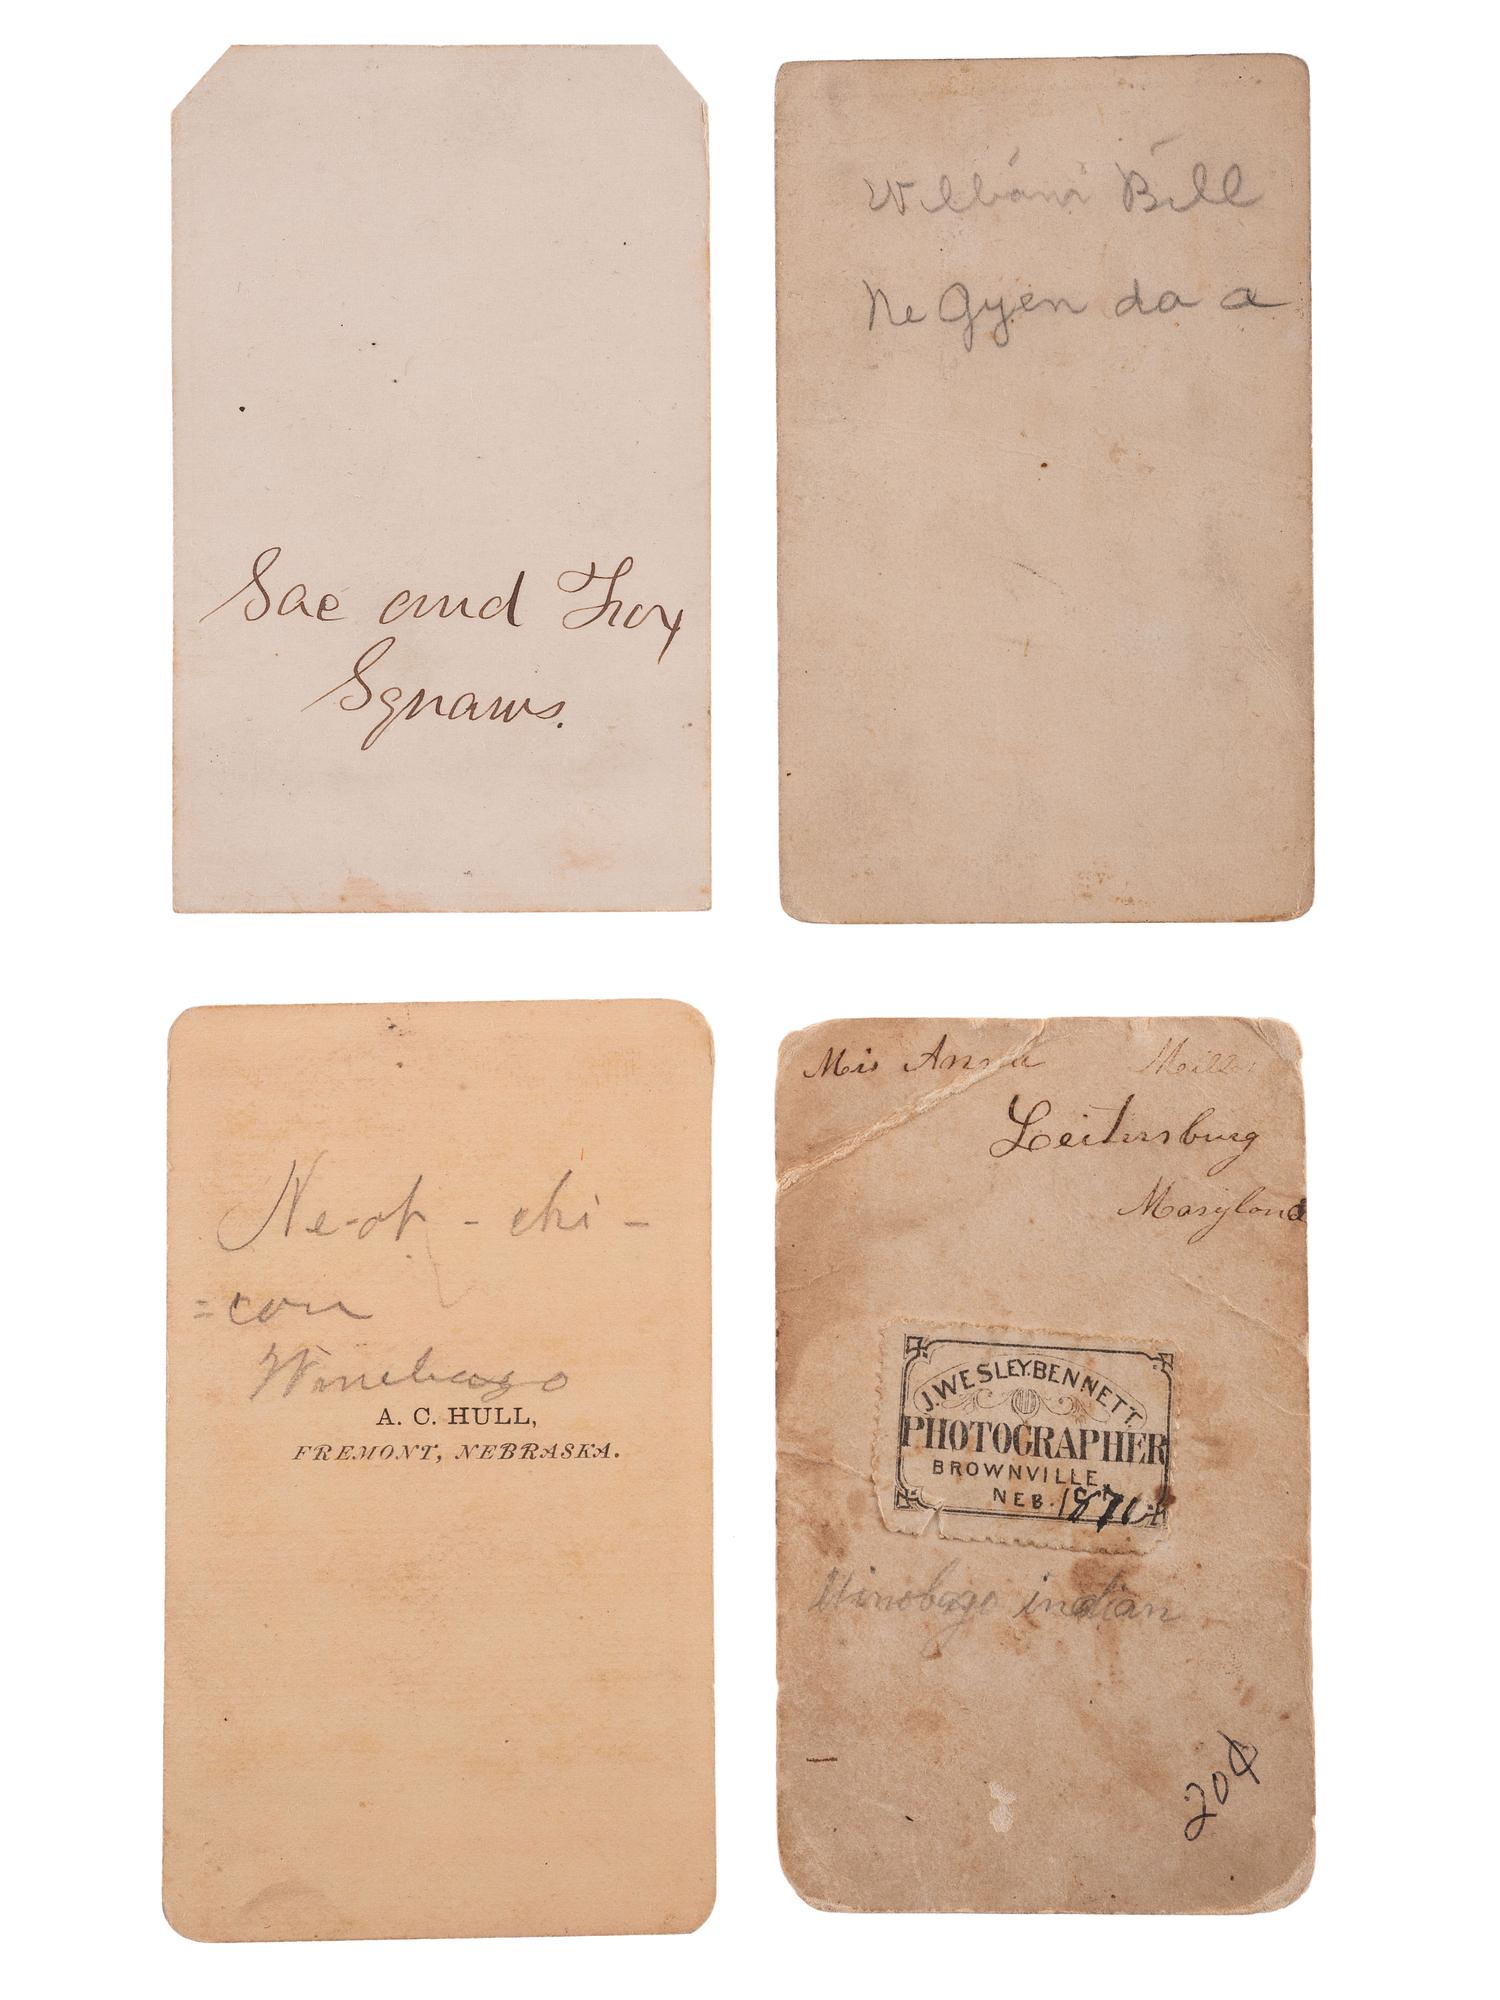 Sac and Fox
Squaws.
William Bill
Ne Gyen da a
Ne-op - chi -
= con
Winebago
A. C. HULL,
FREMONT, NEBRASKA.
Mis Anna Miller
Leitersburg
Maryland
J. WESLEY BENNETT.
PHOTOGRAPHER
BROWNVILLE,
NEB. 1871
Winobago indian
20¢